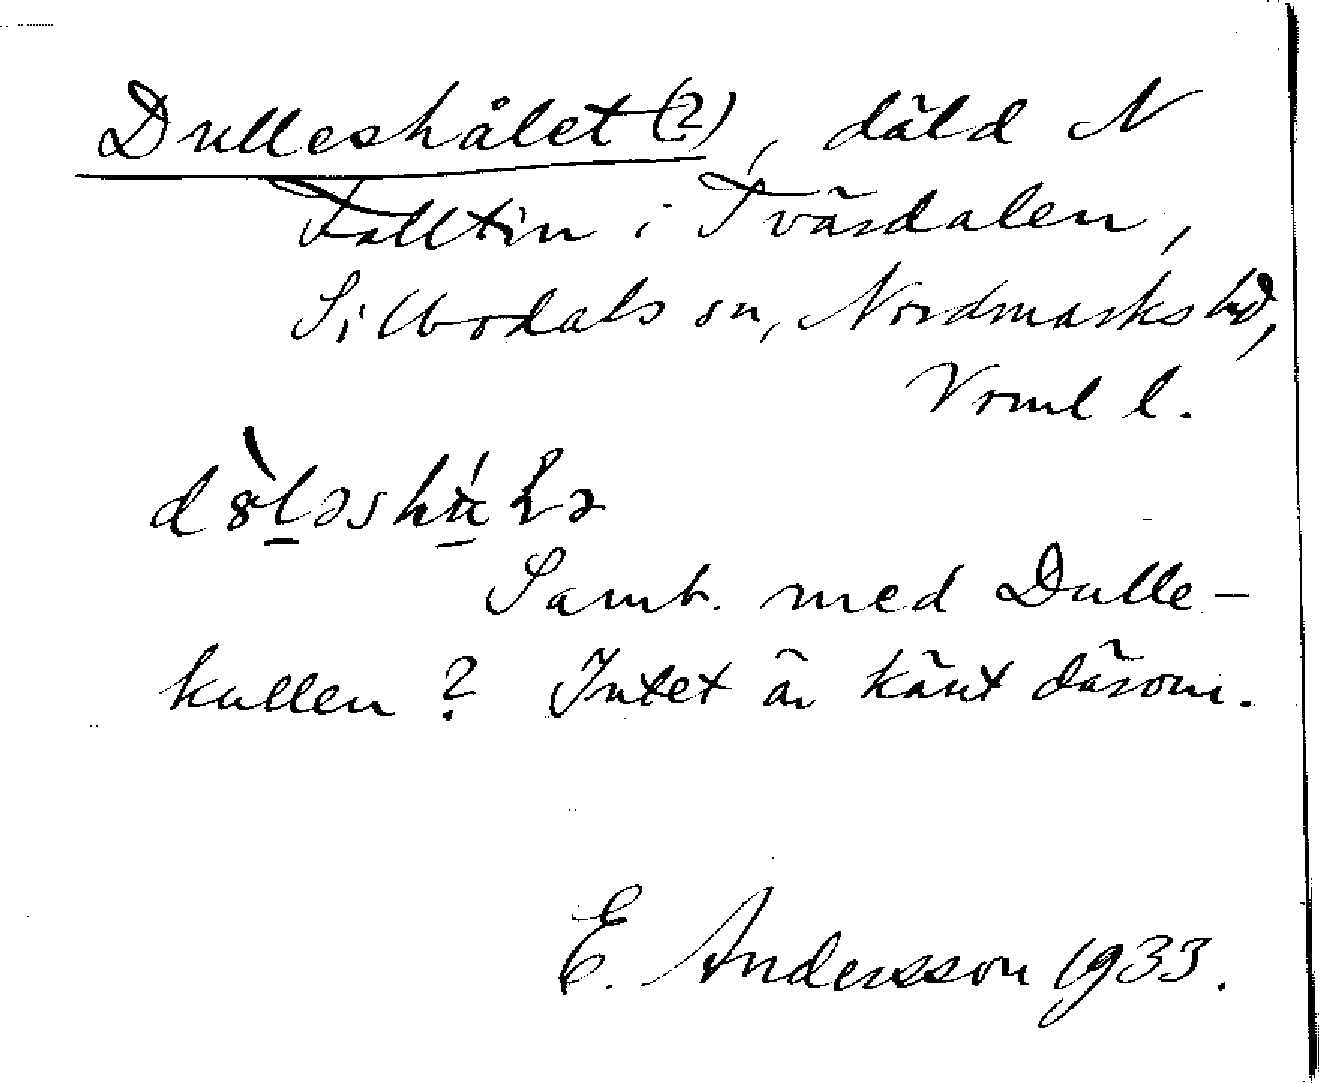 Dulleshålet (?), däld N
Falltin i Tvärdalen,
Silbodals sn, Nordmarks hd,
Verml l.
Samh. med Dulle-
kullen? Intet är känt därom.
E. Andersson 1933.